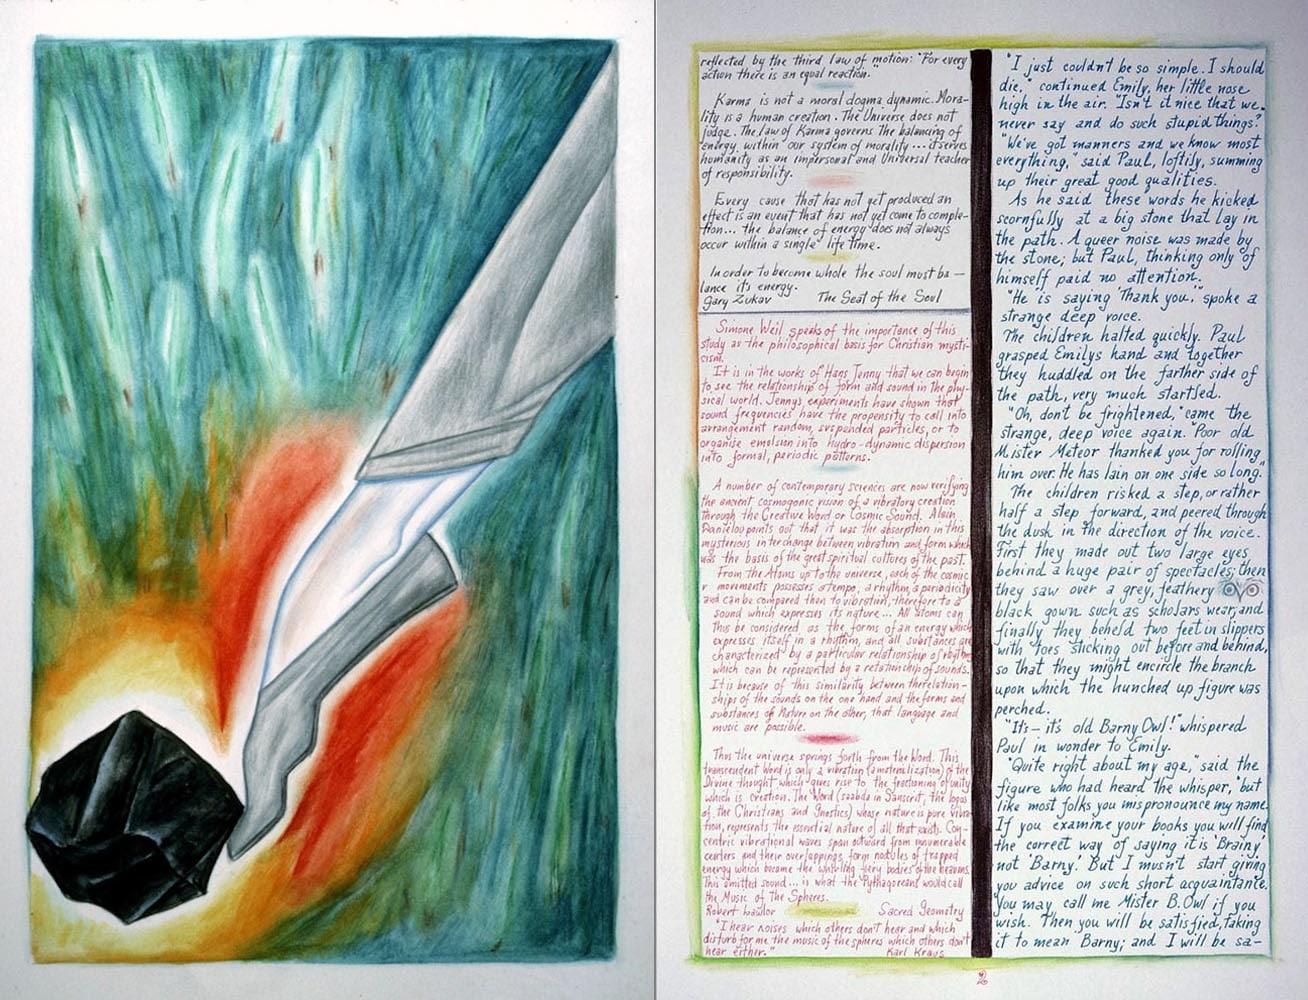 reflected by the third law of motion: "For every
action there is an equal reaction."
Karma is not a moral dogma dynamic. Mora-
lity is a human creation. The Universe does not
judge. The law of Karma governs the balancing of
energy within our system of morality... it serves
humanity as an impersonal and Universal teacher
of responsibility.
Every cause that has not yet produced an
effect is an event that has not yet come to comple-
tion... the balance of energy does not always
occur within a single life time.
In order to become whole the soul must ba-
lance its energy.
Gary Zukav The Seat of the Soul
Simone Weil speaks of the importance of this
study as the philosophical basis for Christian mysti-
cism.
It is in the works of Hans Jenny that we can begin
to see the relationship of form and sound in the phy-
sical world. Jenny's experiments have shown that
sound frequencies have the propensity to call into
arrangement random, suspended particles, or to
organise emulsion into hydro-dynamic dispersion
into formal, periodic patterns.
A number of contemporary sciences are now verifying
the ancient cosmogonic vision of a vibratory creation
through the Creative Word or Cosmic Sound. Alain
Danielou points out that it was the absorption in this
mysterious interchange between vibration and form which
was the basis of the great spiritual cultures of the past.
From the Atoms up to the universe, each of the cosmic
movements possesses a tempo, a rhythm, a periodicity
and can be compared then to vibration, therefore to a
sound which expresses its nature... All atoms can
thus be considered as the forms of an energy which
expresses itself in a rhythm, and all substances are
characterized by a particular relationship of rhythms
which can be represented by a relationship of sounds.
It is because of this similarity between the relation-
ships of the sounds on the one hand and the forms and
substances of Nature on the other, that language and
music are possible.
Thus the universe springs forth from the Word. This
transcendent Word is only a vibration (a materialization) of the
Divine thought which gives rise to the fractioning of unity
which is creation. The Word (saabda in Sanscrit, the logos
of the Christians and Gnostics) whose nature is pure vibra-
tion, represents the essential nature of all that exists. Con-
centric vibrational waves span outward from innumerable
centers and their overlappings form nodules of trapped
energy which become the whirling fiery bodies of the heavens.
This emitted sound... is what the Pythagoreans would call
the Music of the Spheres.
Robert Lawlor Sacred Geometry
"I hear noises which others don't hear and which
disturb for me the music of the spheres which others don't
hear either." Karl Kraus
"I just couldn't be so simple. I should
die," continued Emily, her little nose
high in the air. "Isn't it nice that we
never say and do such stupid things?"
"We've got manners and we know most
everything," said Paul, loftily, summing
up their great good qualities.
As he said these words he kicked
scornfully at a big stone that lay in
the path. A queer noise was made by
the stone; but Paul, thinking only of
himself paid no attention.
"He is saying 'Thank you,'" spoke a
strange deep voice.
The children halted quickly. Paul
grasped Emilys hand and together
they huddled on the farther side of
the path, very much startled.
"Oh, don't be frightened," came the
strange, deep voice again. "Poor old
Mister Meteor thanked you for rolling
him over. He has lain on one side so long."
The children risked a step, or rather
half a step forward, and peered through
the dusk in the direction of the voice.
First they made out two large eyes
behind a huge pair of spectacles; then
they saw over a grey, feathery
black gown such as scholars wear, and
finally they beheld two feet in slippers
with toes sticking out before and behind,
so that they might encircle the branch
upon which the hunched up figure was
perched.
"It's - it's old Barny Owl!" whispered
Paul in wonder to Emily.
"Quite right about my age," said the
figure who had heard the whisper, "but
like most folks you mispronounce my name.
If you examine your books you will find
the correct way of saying it is 'Brainy'
not 'Barny.' But I musn't start giving
you advice on such short acquaintance.
You may call me Mister B. Owl if you
wish. Then you will be satisfied, taking
it to mean Barny; and I will be sa-
2